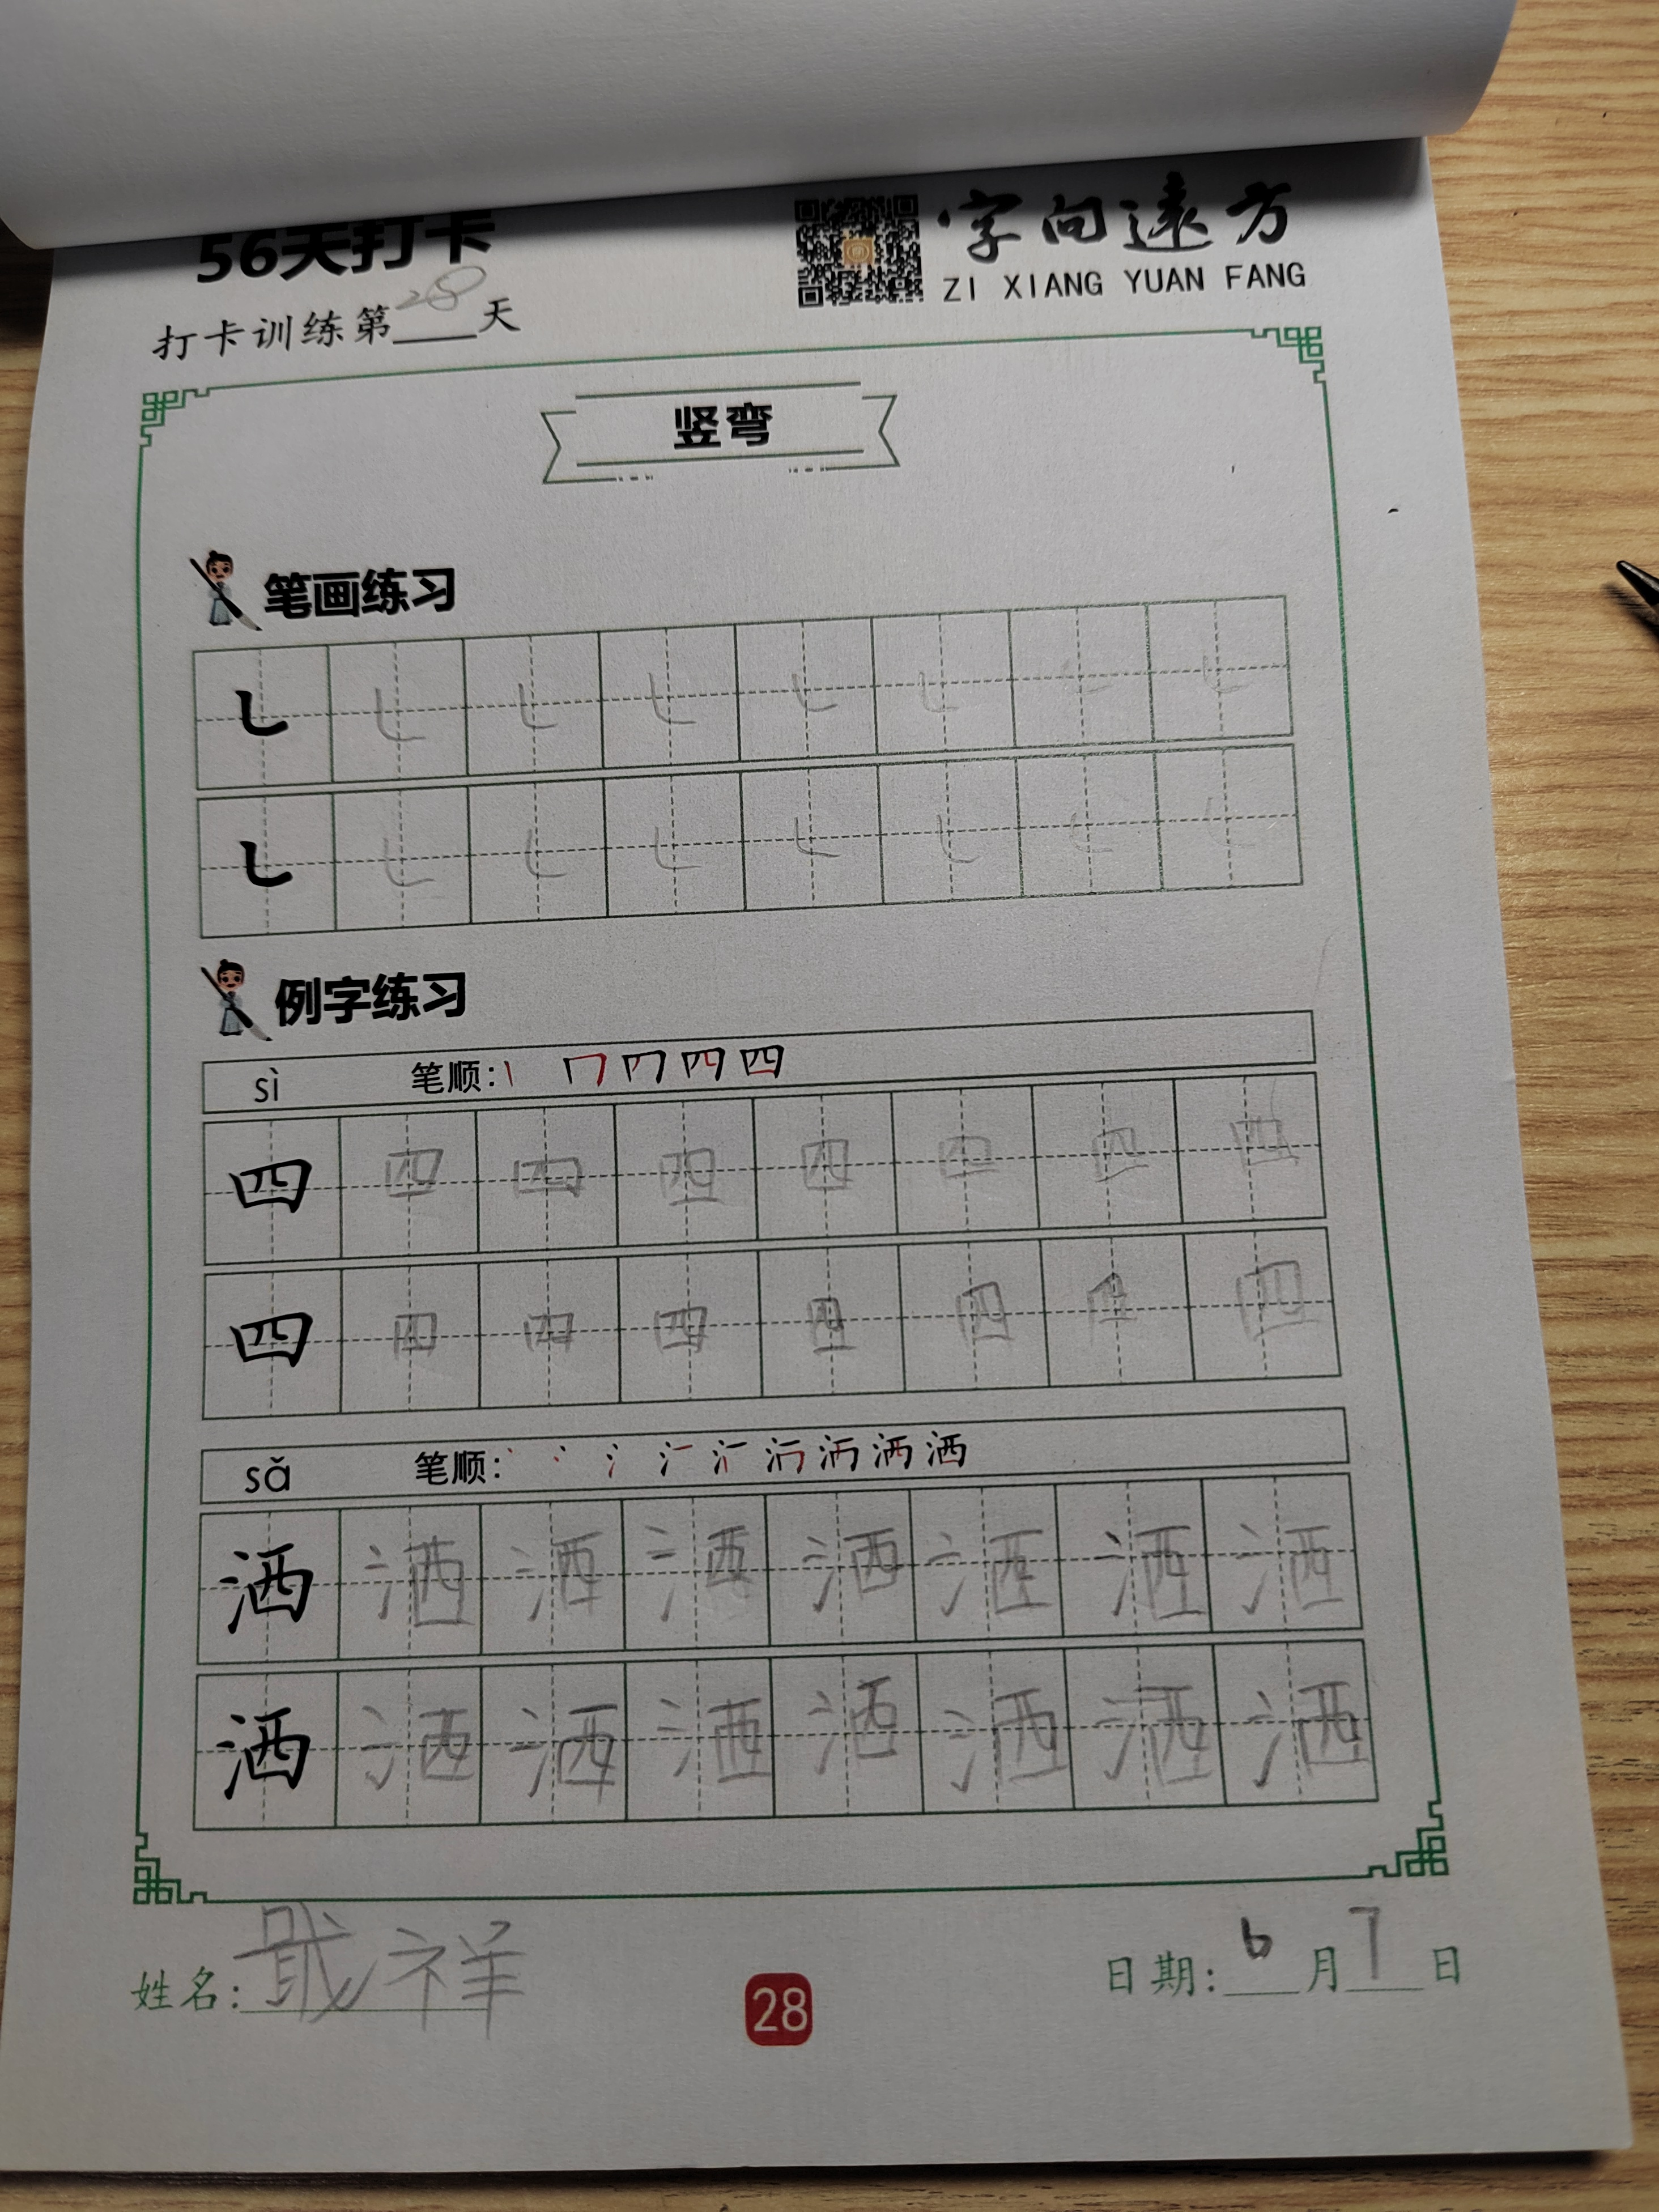 56天打卡
字向遠方
ZI XIANG YUAN FANG
打卡训练第28天
竖弯
笔画练习
㇄ ㇄ ㇄ ㇄ ㇄ ㇄ ㇄ ㇄
㇄ ㇄ ㇄ ㇄ ㇄ ㇄ ㇄ ㇄
例字练习
sì 笔顺:
四 四 四 四 四 四 四 四
四 四 四 四 四 四 四 四
sǎ 笔顺:
洒 洒 洒 洒 洒 洒 洒 洒
洒 洒 洒 洒 洒 洒 洒 洒
姓名: 祥
28
日期: 6月7日